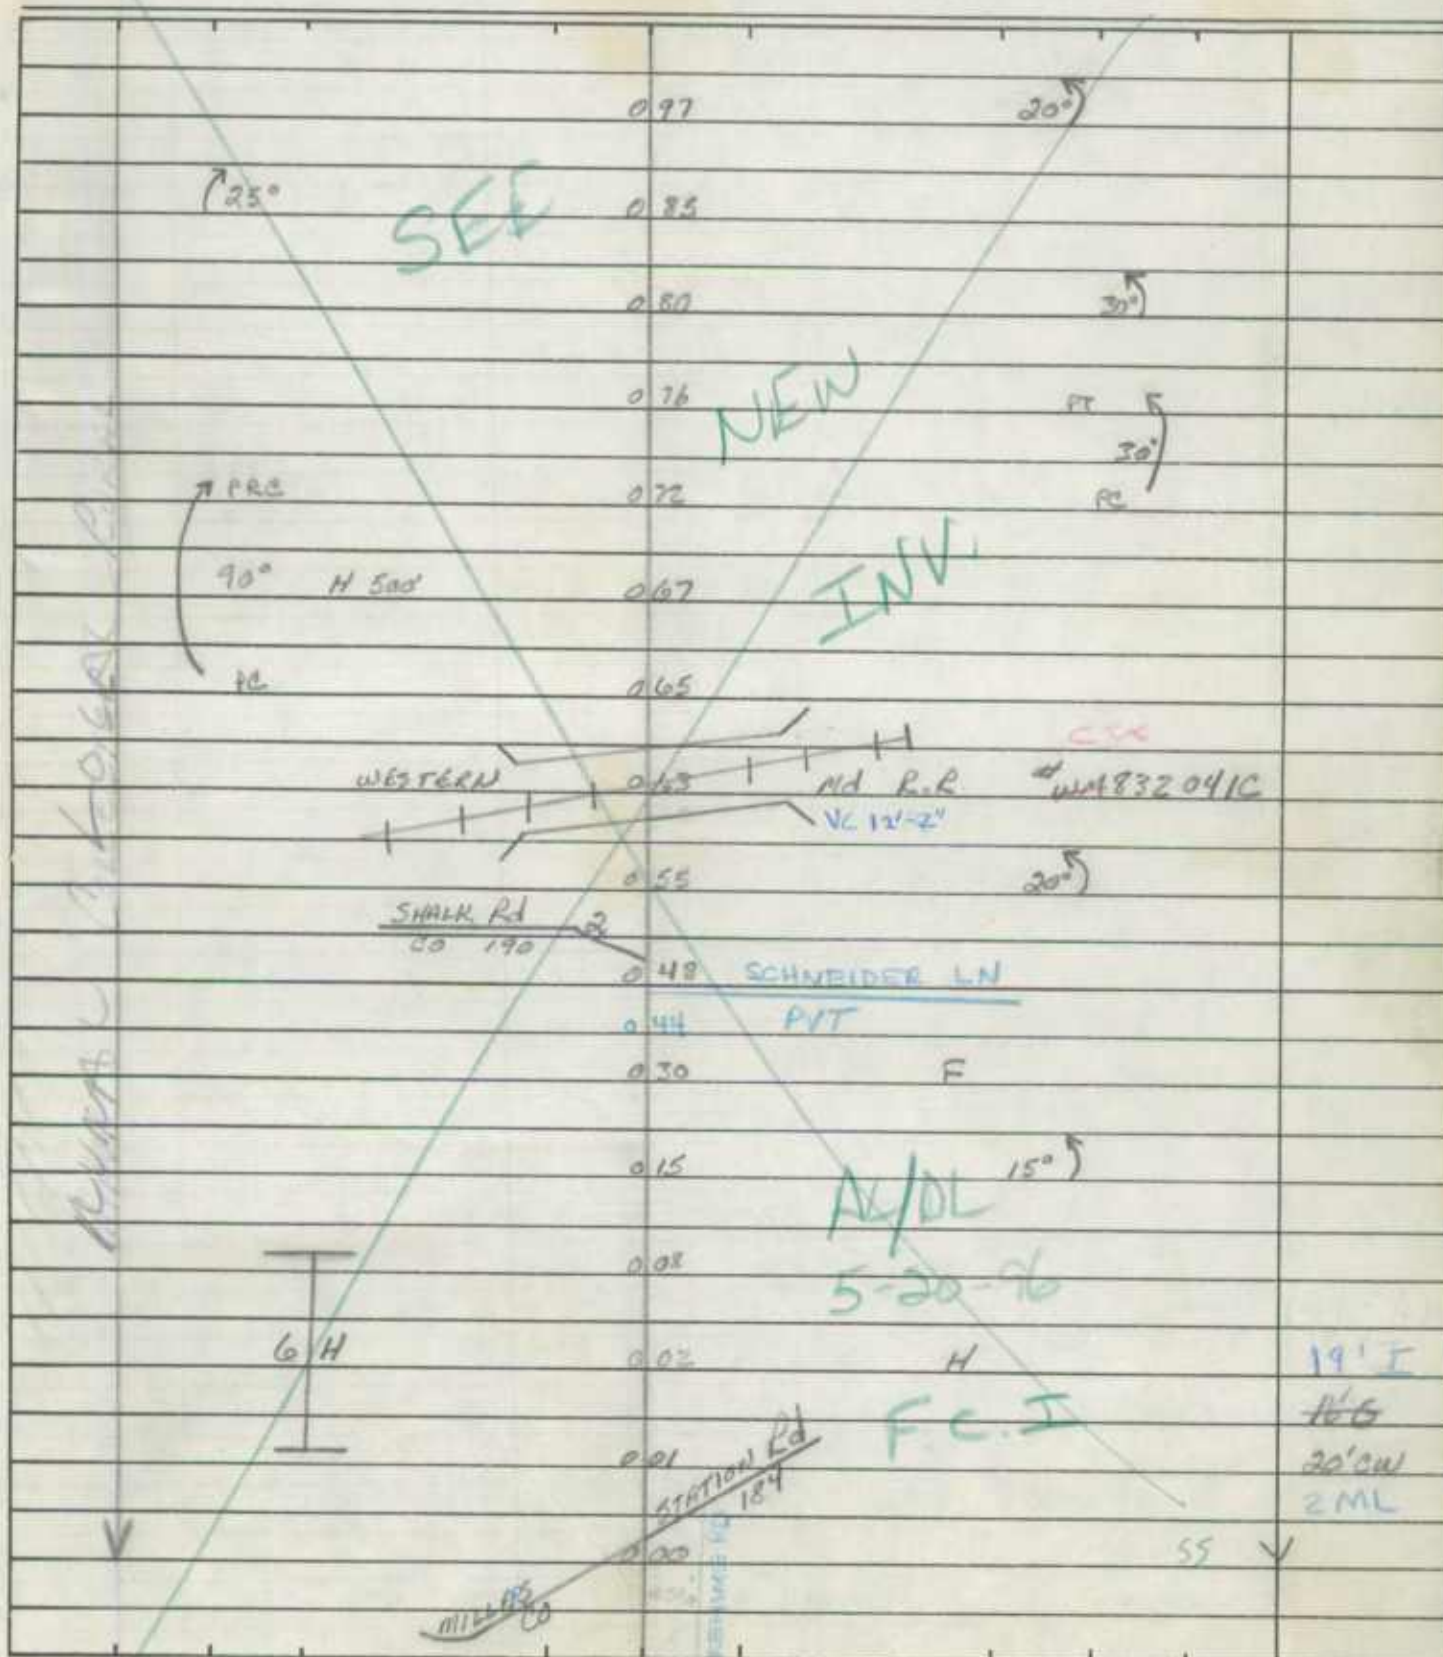 0 97 20°
25° 0 83
SEE
0 80 30°
NEW
0 76 PT
30°
PRC 0 72 PC
INV.
90° H 500' 0 67
PC 0 65
CSX
WESTERN 0 63 Md R.R # WM 832 041C
VC 12'-2"
0 55 20°
SHALK Rd 2
CO 190
0 48 SCHNEIDER LN
0 44 PVT
0 30 F
0 15 15°
AL/DL
0 08
5-20-96
6 H 0 02 H 19' I
F.C.I 16' G
0 01 20' CW
STATION Rd
184
2 ML
0 00 SS
MILLERS
CO
RURAL